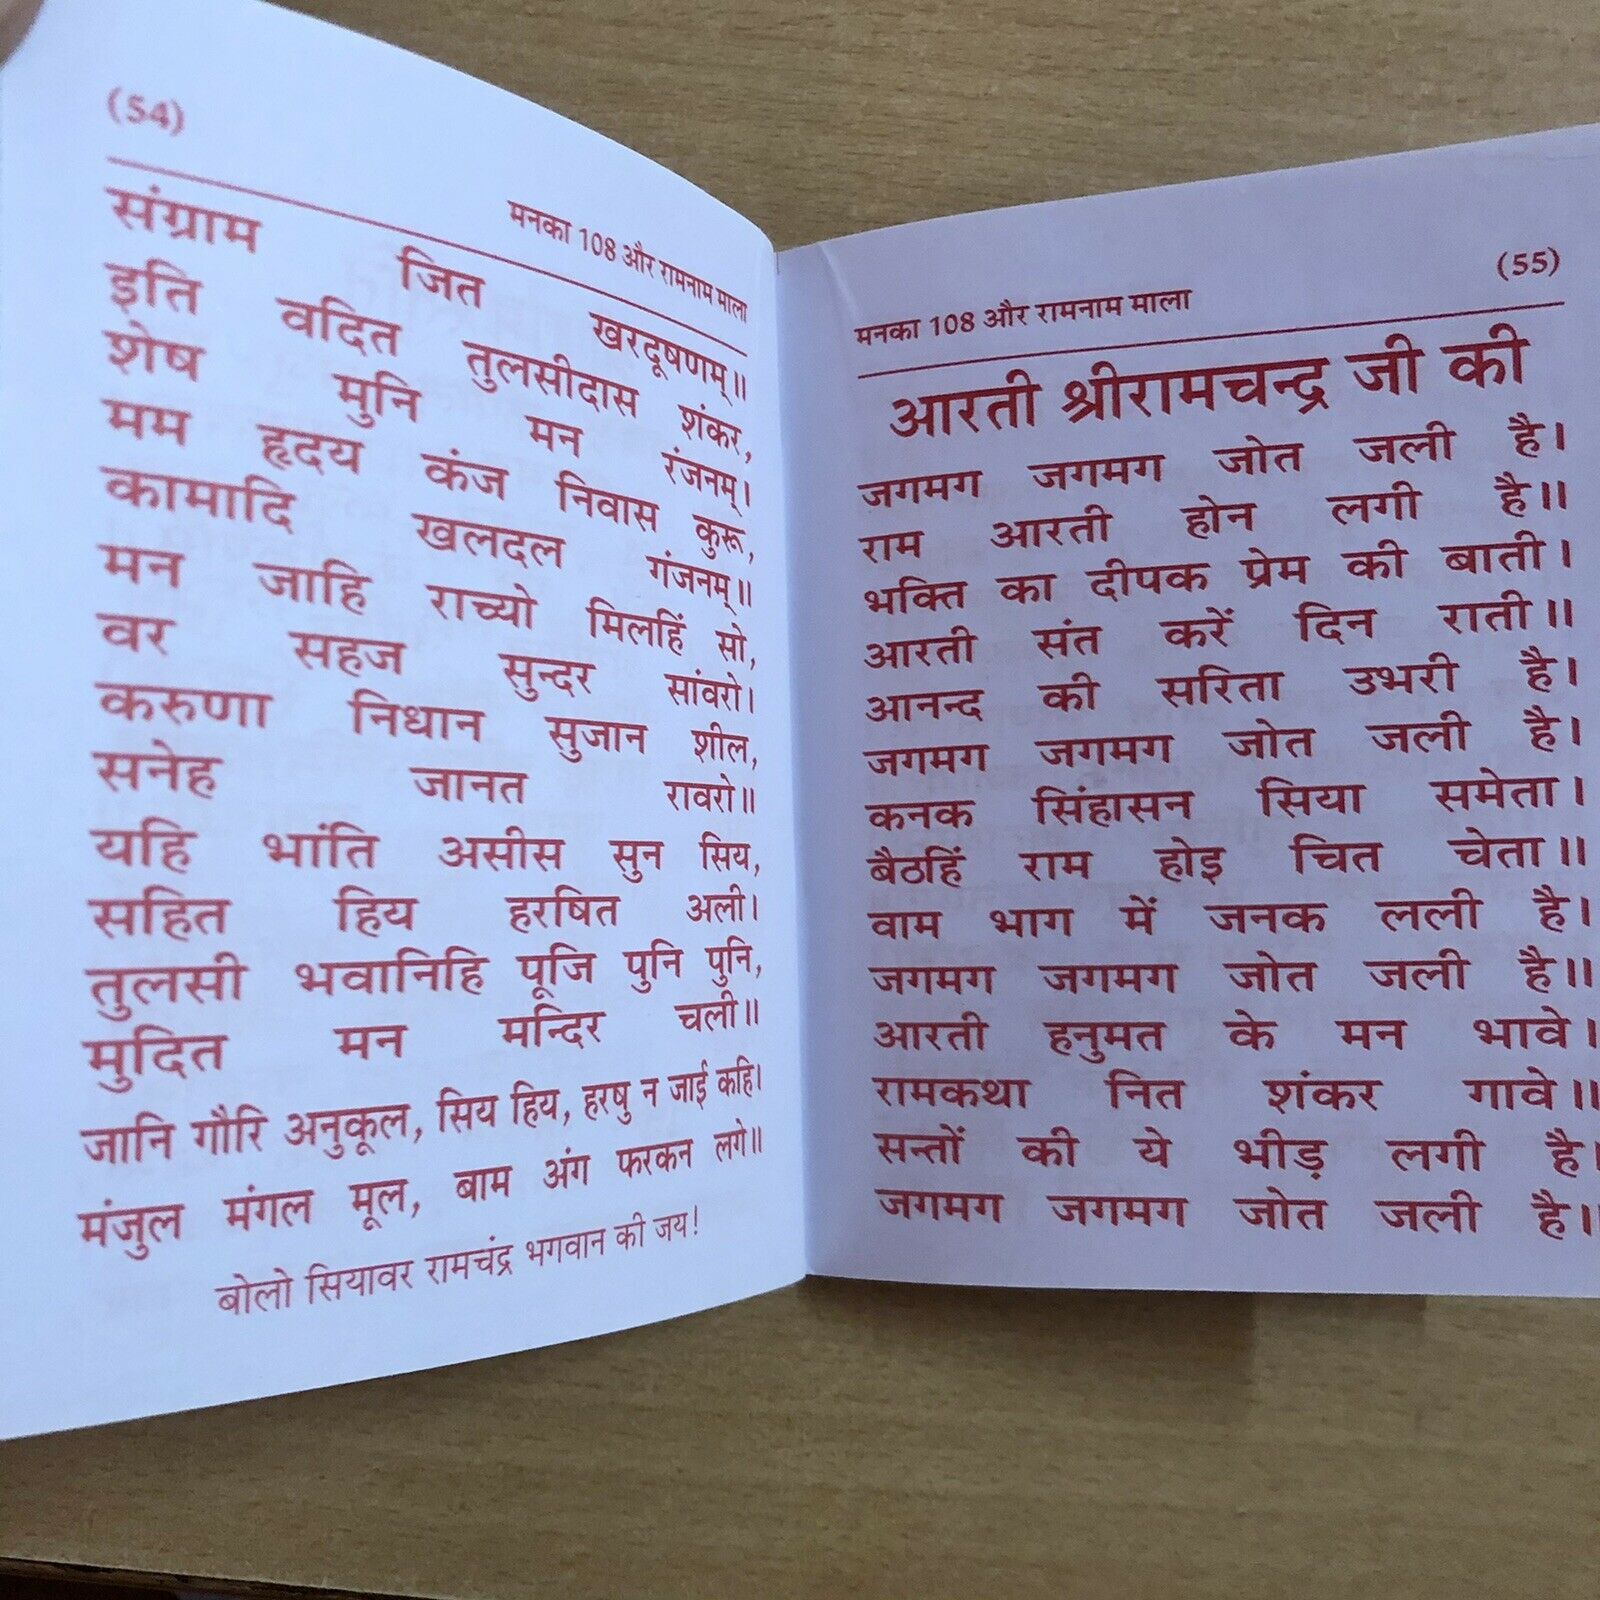 (54)
मनका 108 और रामनाम माला
संग्राम जित खरदूषणम्॥
इति वदित तुलसीदास शंकर,
शेष मुनि मन रंजनम्।
मम हृदय कंज निवास कुरू,
कामादि खलदल गंजनम्॥
मन जाहि राच्यो मिलहिं सो,
वर सहज सुन्दर सांवरो।
करुणा निधान सुजान शील,
सनेह जानत रावरो॥
यहि भांति असीस सुन सिय,
सहित हिय हरषित अली।
तुलसी भवानिहि पूजि पुनि पुनि,
मुदित मन मन्दिर चली॥
जानि गौरि अनुकूल, सिय हिय, हरषु न जाई कहि।
मंजुल मंगल मूल, बाम अंग फरकन लगे॥
बोलो सियावर रामचंद्र भगवान की जय!
(55)
मनका 108 और रामनाम माला
आरती श्रीरामचन्द्र जी की
जगमग जगमग जोत जली है।
राम आरती होन लगी है॥
भक्ति का दीपक प्रेम की बाती।
आरती संत करें दिन राती॥
आनन्द की सरिता उभरी है।
जगमग जगमग जोत जली है।
कनक सिंहासन सिया समेता।
बैठहिं राम होइ चित चेता॥
वाम भाग में जनक लली है।
जगमग जगमग जोत जली है॥
आरती हनुमत के मन भावे।
रामकथा नित शंकर गावे॥
सन्तों की ये भीड़ लगी है।
जगमग जगमग जोत जली है॥